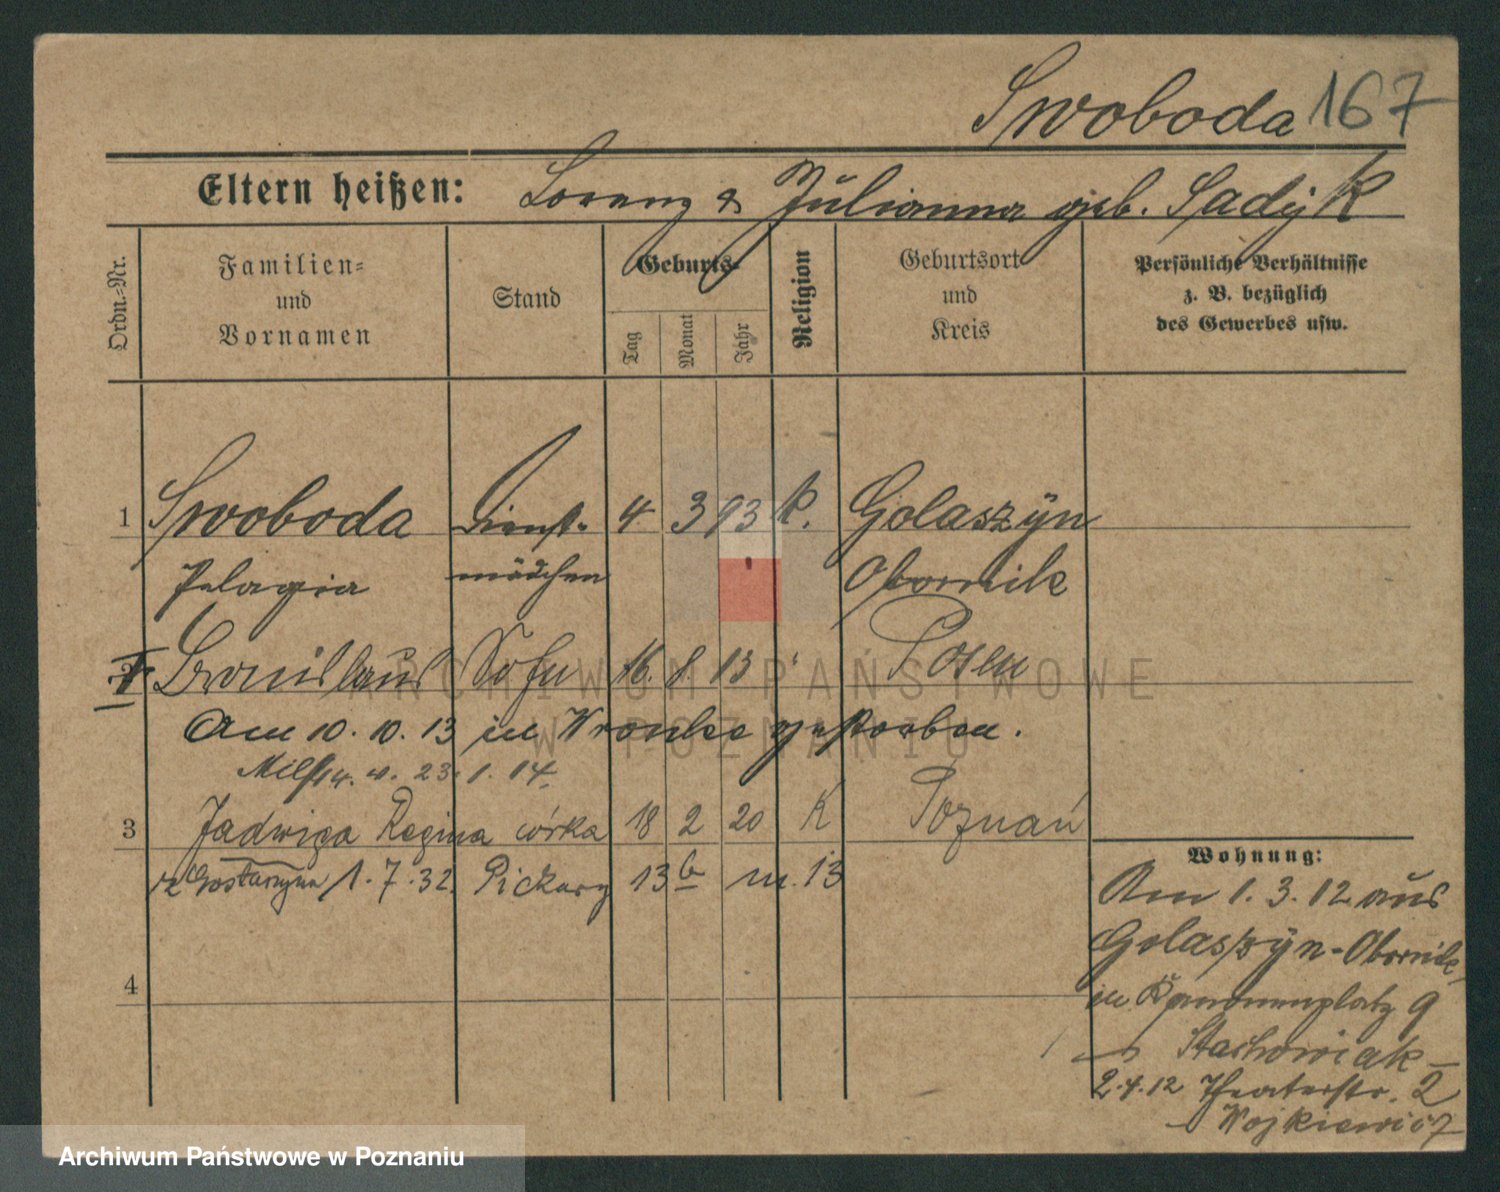 Swoboda 167
Eltern heißen: Lorenz & Julianna geb. Sadyk
Ordn.-Nr.
Familien-
und
Vornamen
Stand
Geburts-
Tag
Monat
Jahr
Religion
Geburtsort
und
Kreis
Persönliche Verhältnisse
z. B. bezüglich
des Gewerbes usw.
1 Swoboda Dienst- 4 3 93 k. Golaszÿn
Pelagia mädchen Obornik
Bronislaus Sohn 16. 8 13 Posen
Am 10. 10. 13 in Wronke gestorben.
23. 1. 14.
3 Jadwiga Regina córka 18 2 20 K Poznań
z Gostynina 1.7.32. Piekary 13 b m. 13
4
Wohnung:
Am 1. 3. 12 aus
Golaszÿn-Obornik
in Kanonenplatz 9
Stachowiak –
2.4.12 Theaterstr. 2
Wojkiewicz
ARCHIWUM PAŃSTWOWE
W POZNANIU
Archiwum Państwowe w Poznaniu